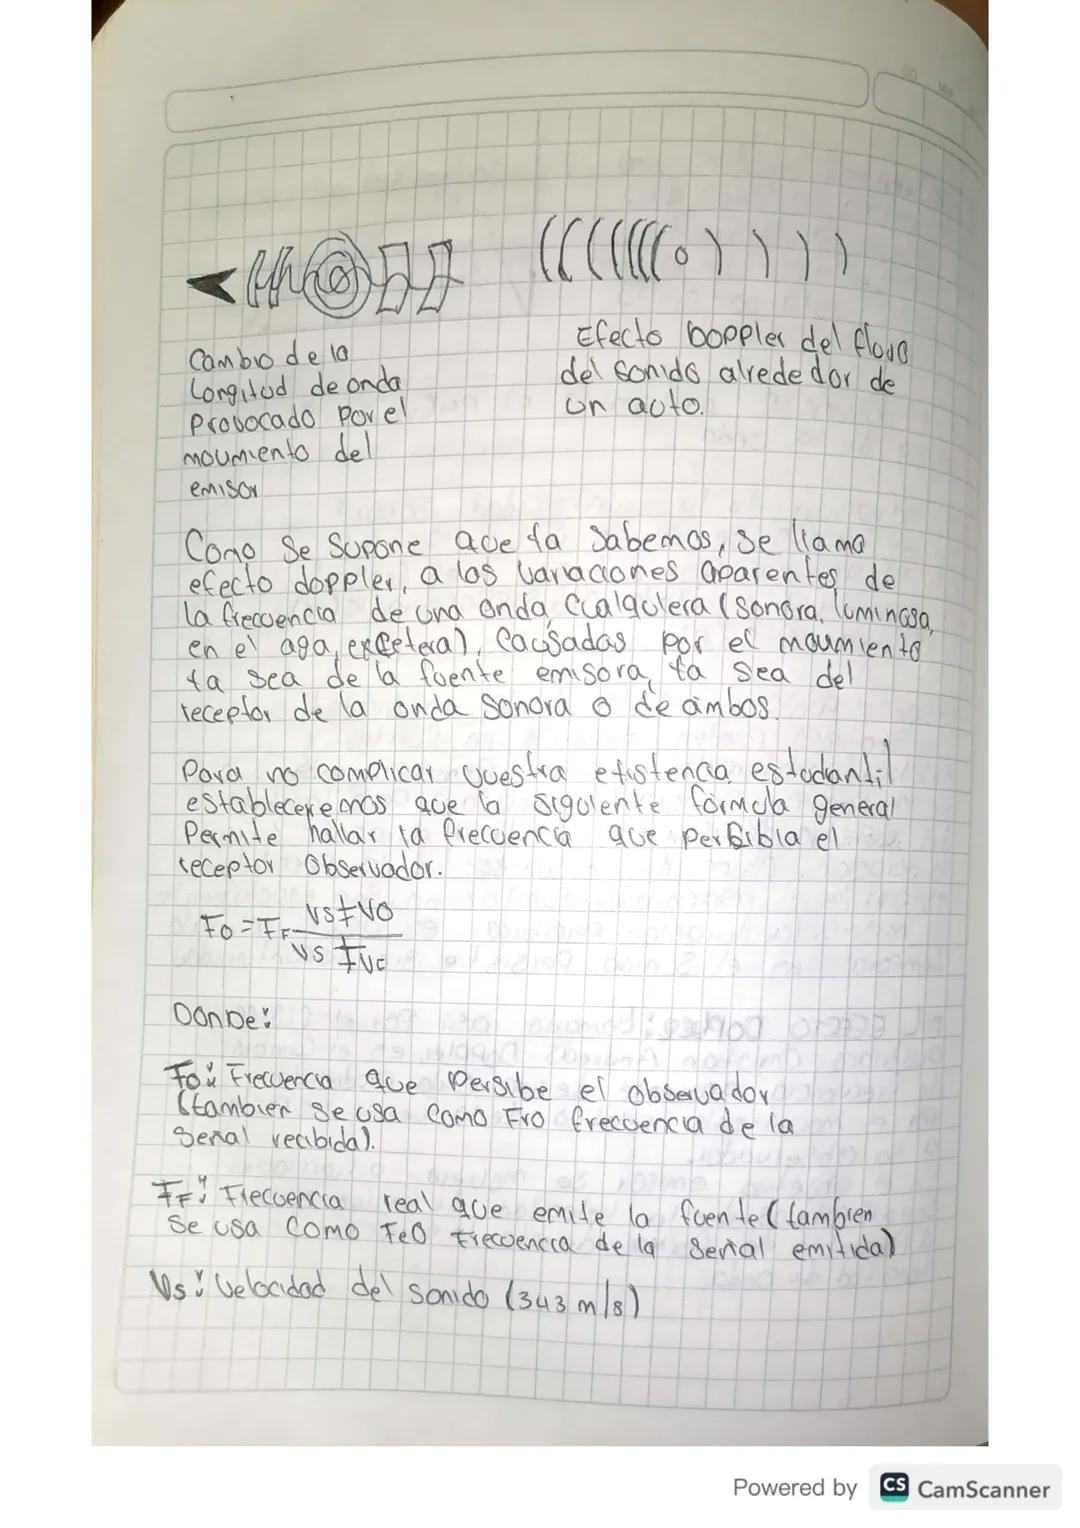 Cambio de la
Longitud de onda
Provocado Por el
moumiento del
emisor
Efecto Doppler del flujo
del sonido alrededor de
un auto.
Como Se Supone que ya Sabemos, se llama
efecto doppler, a las Variaciones aparentes de
la frecuencia de una onda Cualquiera (sonora, luminosa,
en el aga, excetera), Causadas por el moumiento
ya sea de la fuente emisora, ya sea del
receptor de la onda Sonora o de ambos.
Para no complicar Vuestra existencia estudantil
estableceremos que la siguiente formula general
Permite hallar la frecuencia que persibia el
receptor Observador.
Fo = FF VS ± VO
VS ∓ VF
DONDe:
Fo: Frecuencia que Persibe el observador
(tambien se usa como Fro frecuencia de la
Señal recibida).
FF: Frecuencia real que emite la fuente (tambien
Se usa Como FeO Frecuencia de la Señal emitida)
Vs: Velocidad del sonido (343 m/s)
Powered by CS CamScanner